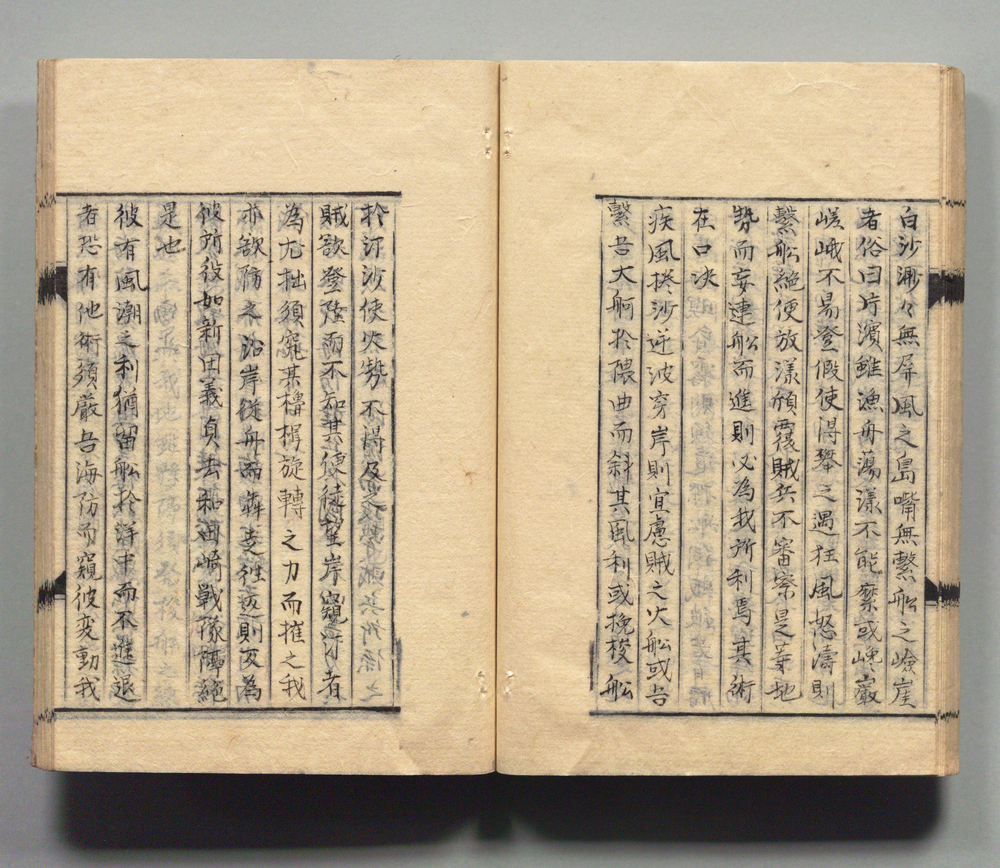 白沙渺々無屏風之島嘴無繫舩之嶮崖
者俗曰片濱雖漁舟蕩漾不能繫或巉巖
嵯峨不易登假使得攀之遇狂風怒濤則
繫舩絕便放漾傾覆賊兵不審察是等地
勢而妄連舩而進則必為我所利焉其術
在口决
疾風捲沙逆波穿岸則宜慮賊之火舩或吾
繫吾大舸於隈曲而斜其風利或挽梭舩
於汀沙使火勢不得及
賊欲登陸而不知其便徒望岸窺汀者
為尤拙須窺其櫓楫旋轉之力而摧之我
亦欲防之沿岸從舟而犇走徃返則反為
彼所役如新田義貞去和田﨑戰隊隔絕
是也
彼有風潮之利猶留舩於洋中而不進退
者恐有他術須嚴吾海防而窺彼変動我